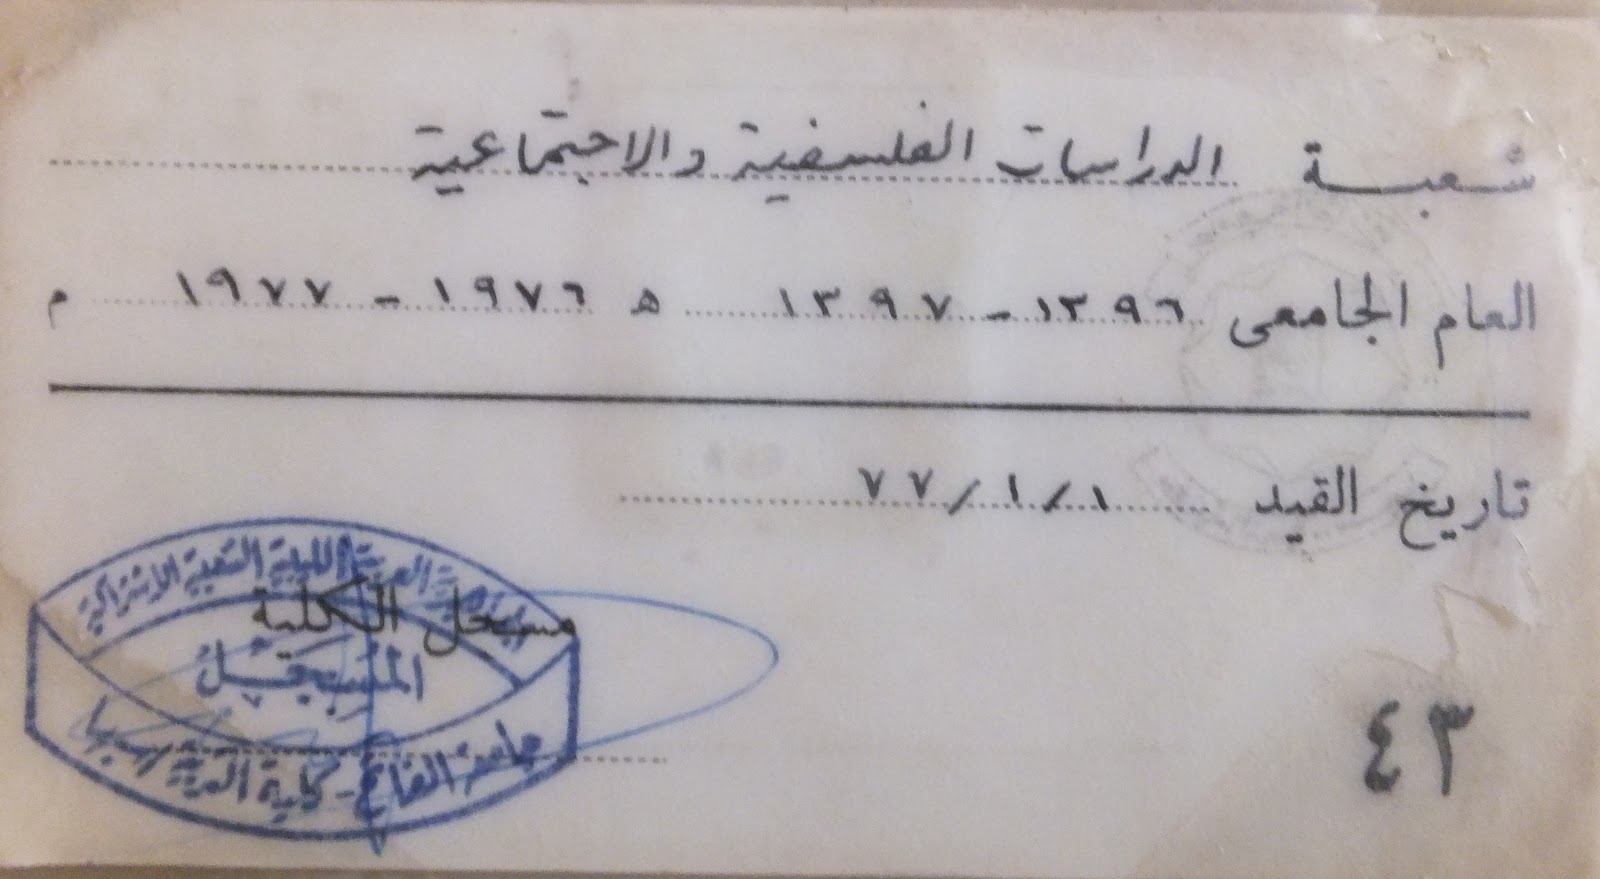 شعبة الدراسات الفلسفية والاجتماعية
العام الجامعى ١٣٩٦ - ١٣٩٧ ه ١٩٧٦ - ١٩٧٧ م
تاريخ القيد ١/١/٧٧
العربية الليبية الشعبية الاشتراكية
مسجل الكلية
المسجل
جامعة الفاتح - كلية التربية سبها
٤٣